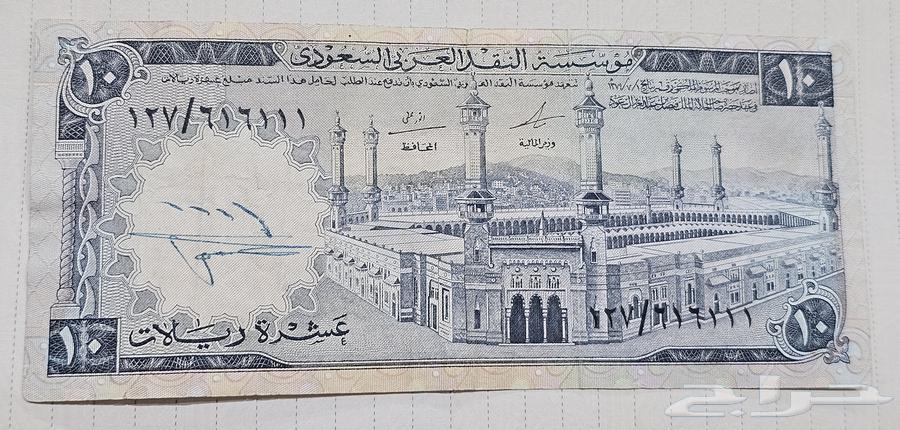 مؤسسة النقد العربي السعودي
تتعهد مؤسسة النقد العربي السعودي بأن تدفع عند الطلب لحامل هذا السند مبلغ عشرة ريالات
١٠
١٠
١٢٧/٦١٦١١١
المحافظ
وزير المالية
١٢٧/٦١٦١١١
عشرة ريالات
١٠
١٠
حراج